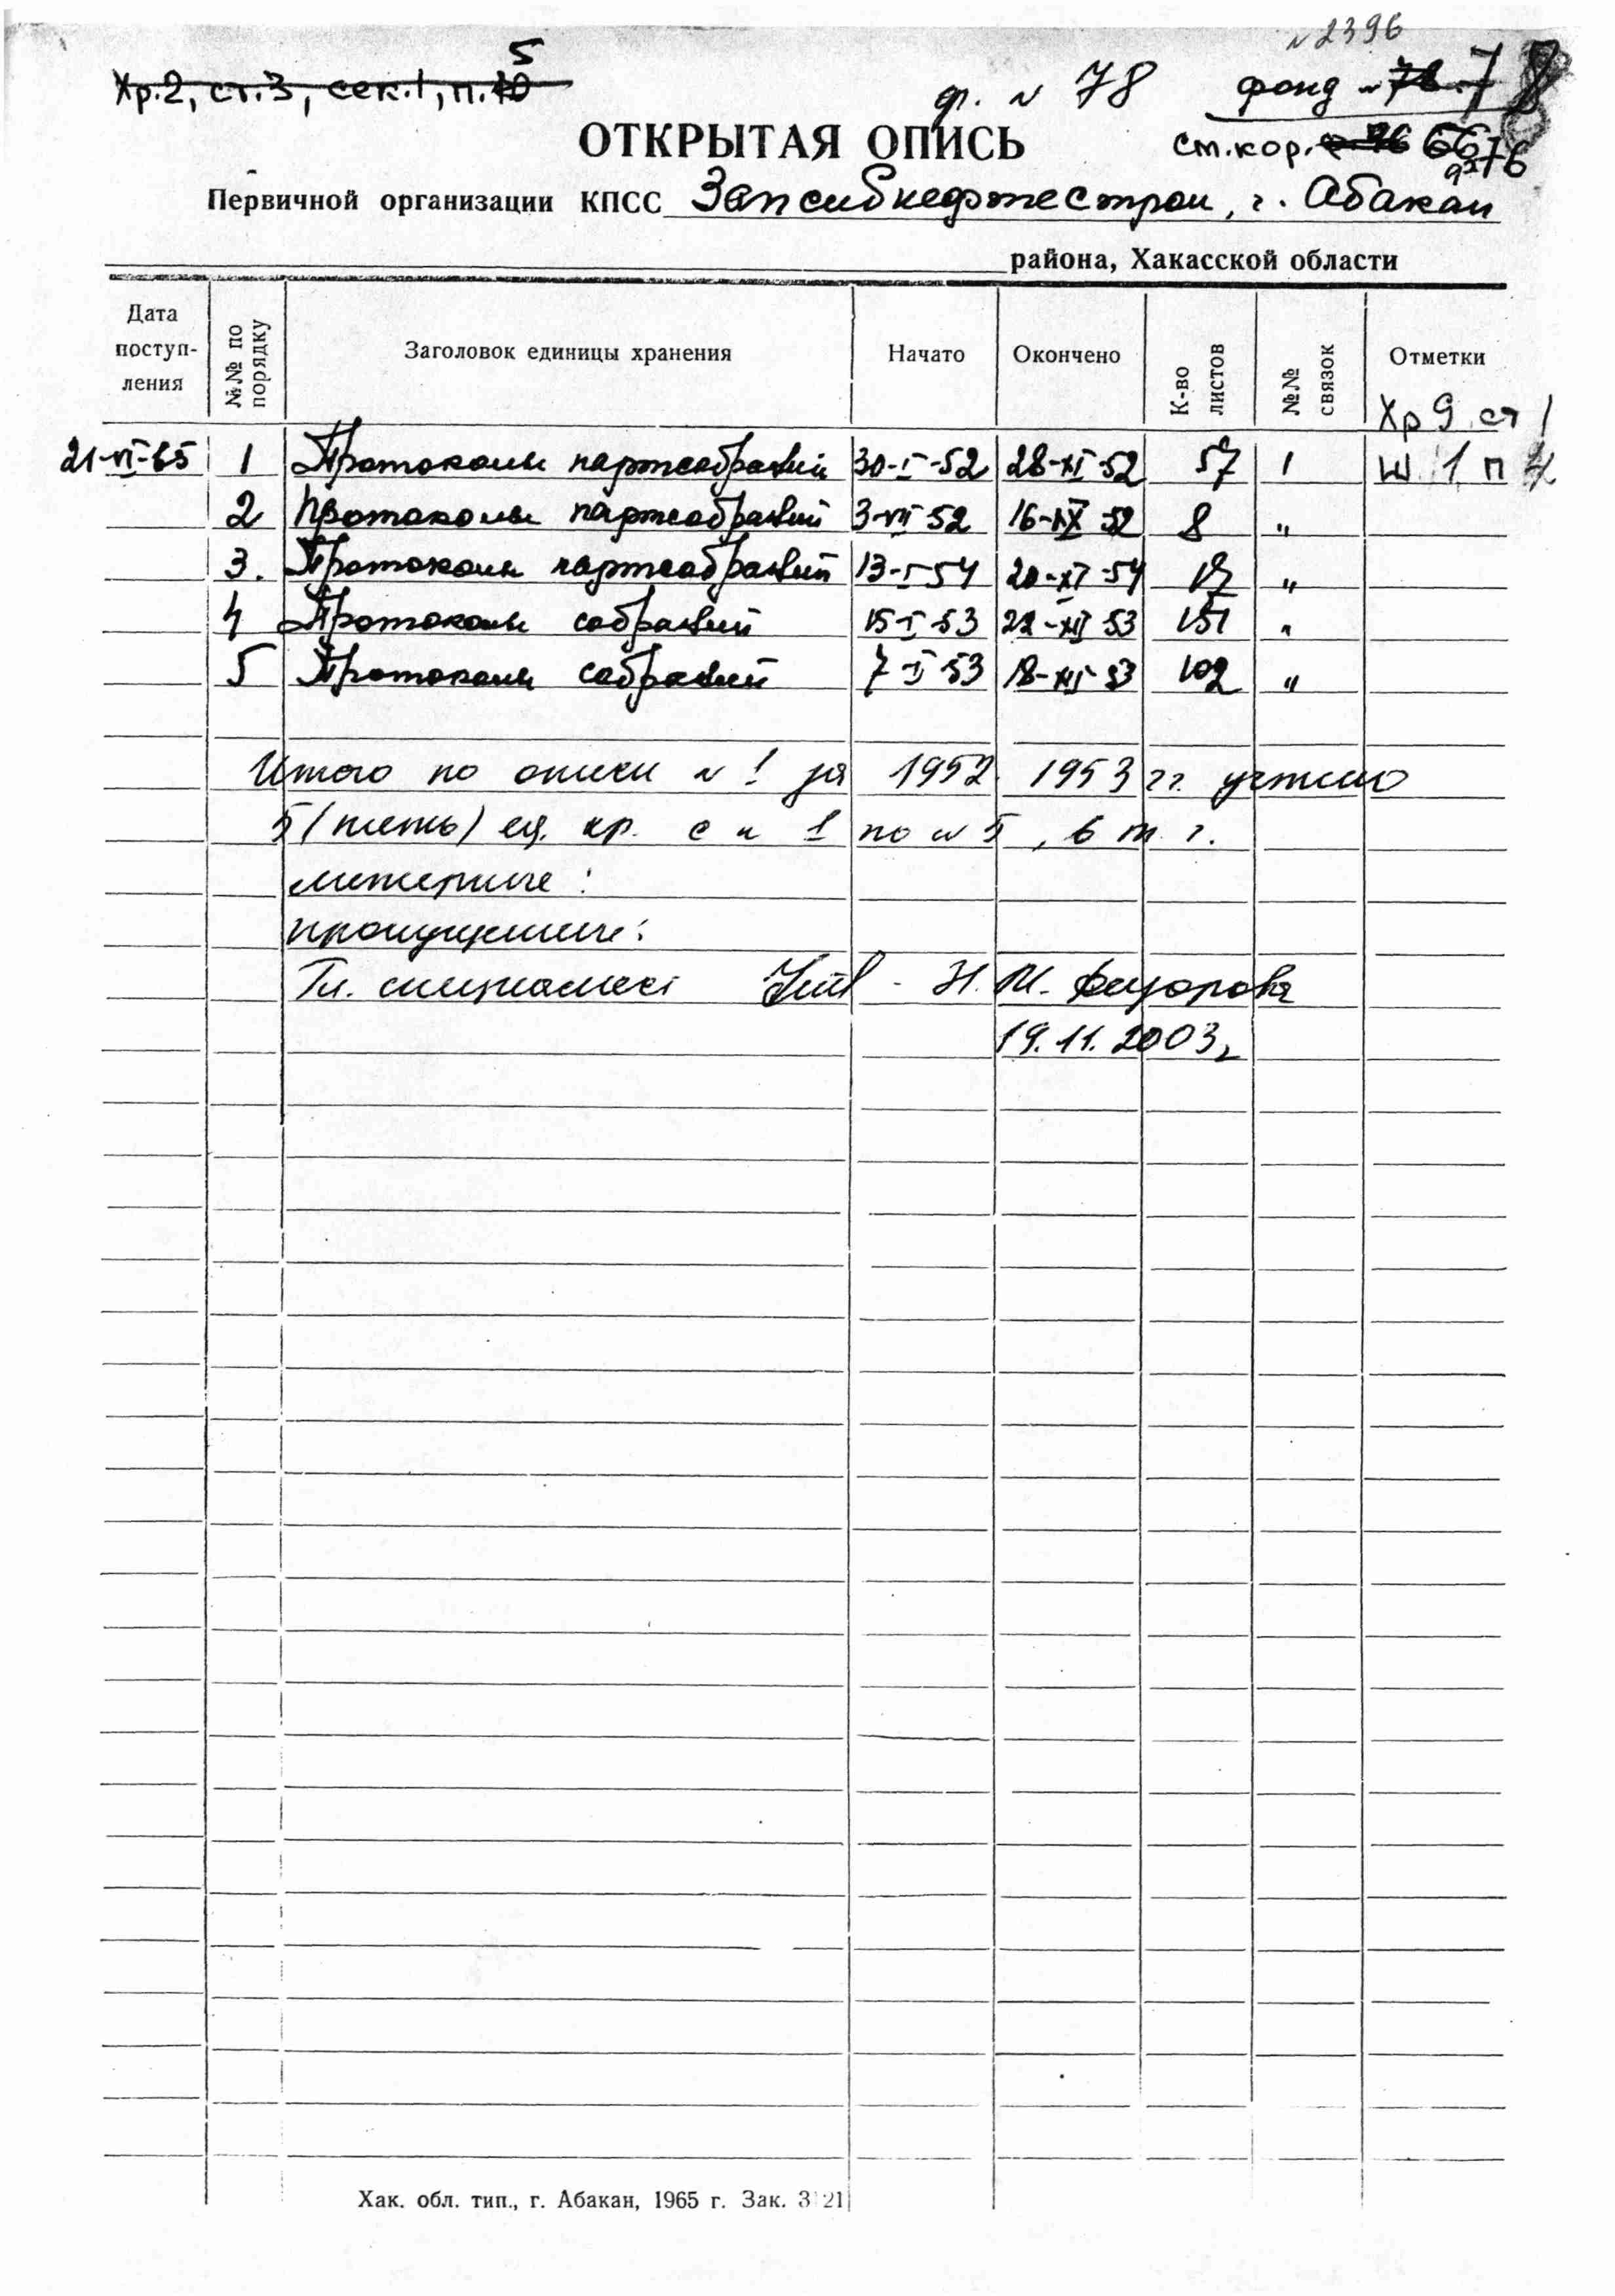 № 2396
5
Хр.2, ст.3, сек.1, п.
ф. № 78 фонд 78
ст.кор. 66
ОТКРЫТАЯ ОПИСЬ
Первичной организации КПСС Запсибнефтестроя, г. Абакан
района, Хакасской области
Дата поступ- ления №№ по порядку Заголовок единицы хранения Начато Окончено К-во листов №№ связок Отметки
Хр 9 ст 1
21-VI-65 1 Протоколы партсобраний 30-I-52 28-XI-52 57 1 ш 1 п
2 Протоколы партсобраний 3-VII 52 52 8 "
3. Протоколы партсобраний 13-I 54 20-XI-54 "
4 Протоколы собраний 15-I-53 22-XII 53 151 "
5 Протоколы собраний 7-I-53 18-XII-53 102 "
Итого по описи № 1 за 1952 1953 гг. учтено
5 (пять) ед. хр. с № 1 по № 5, в т. г.
литерные:
пропущенные:
Гл. специалист - Н. И. Федорова
19.11.2003г
Хак. обл. тип., г. Абакан, 1965 г. Зак. 3121